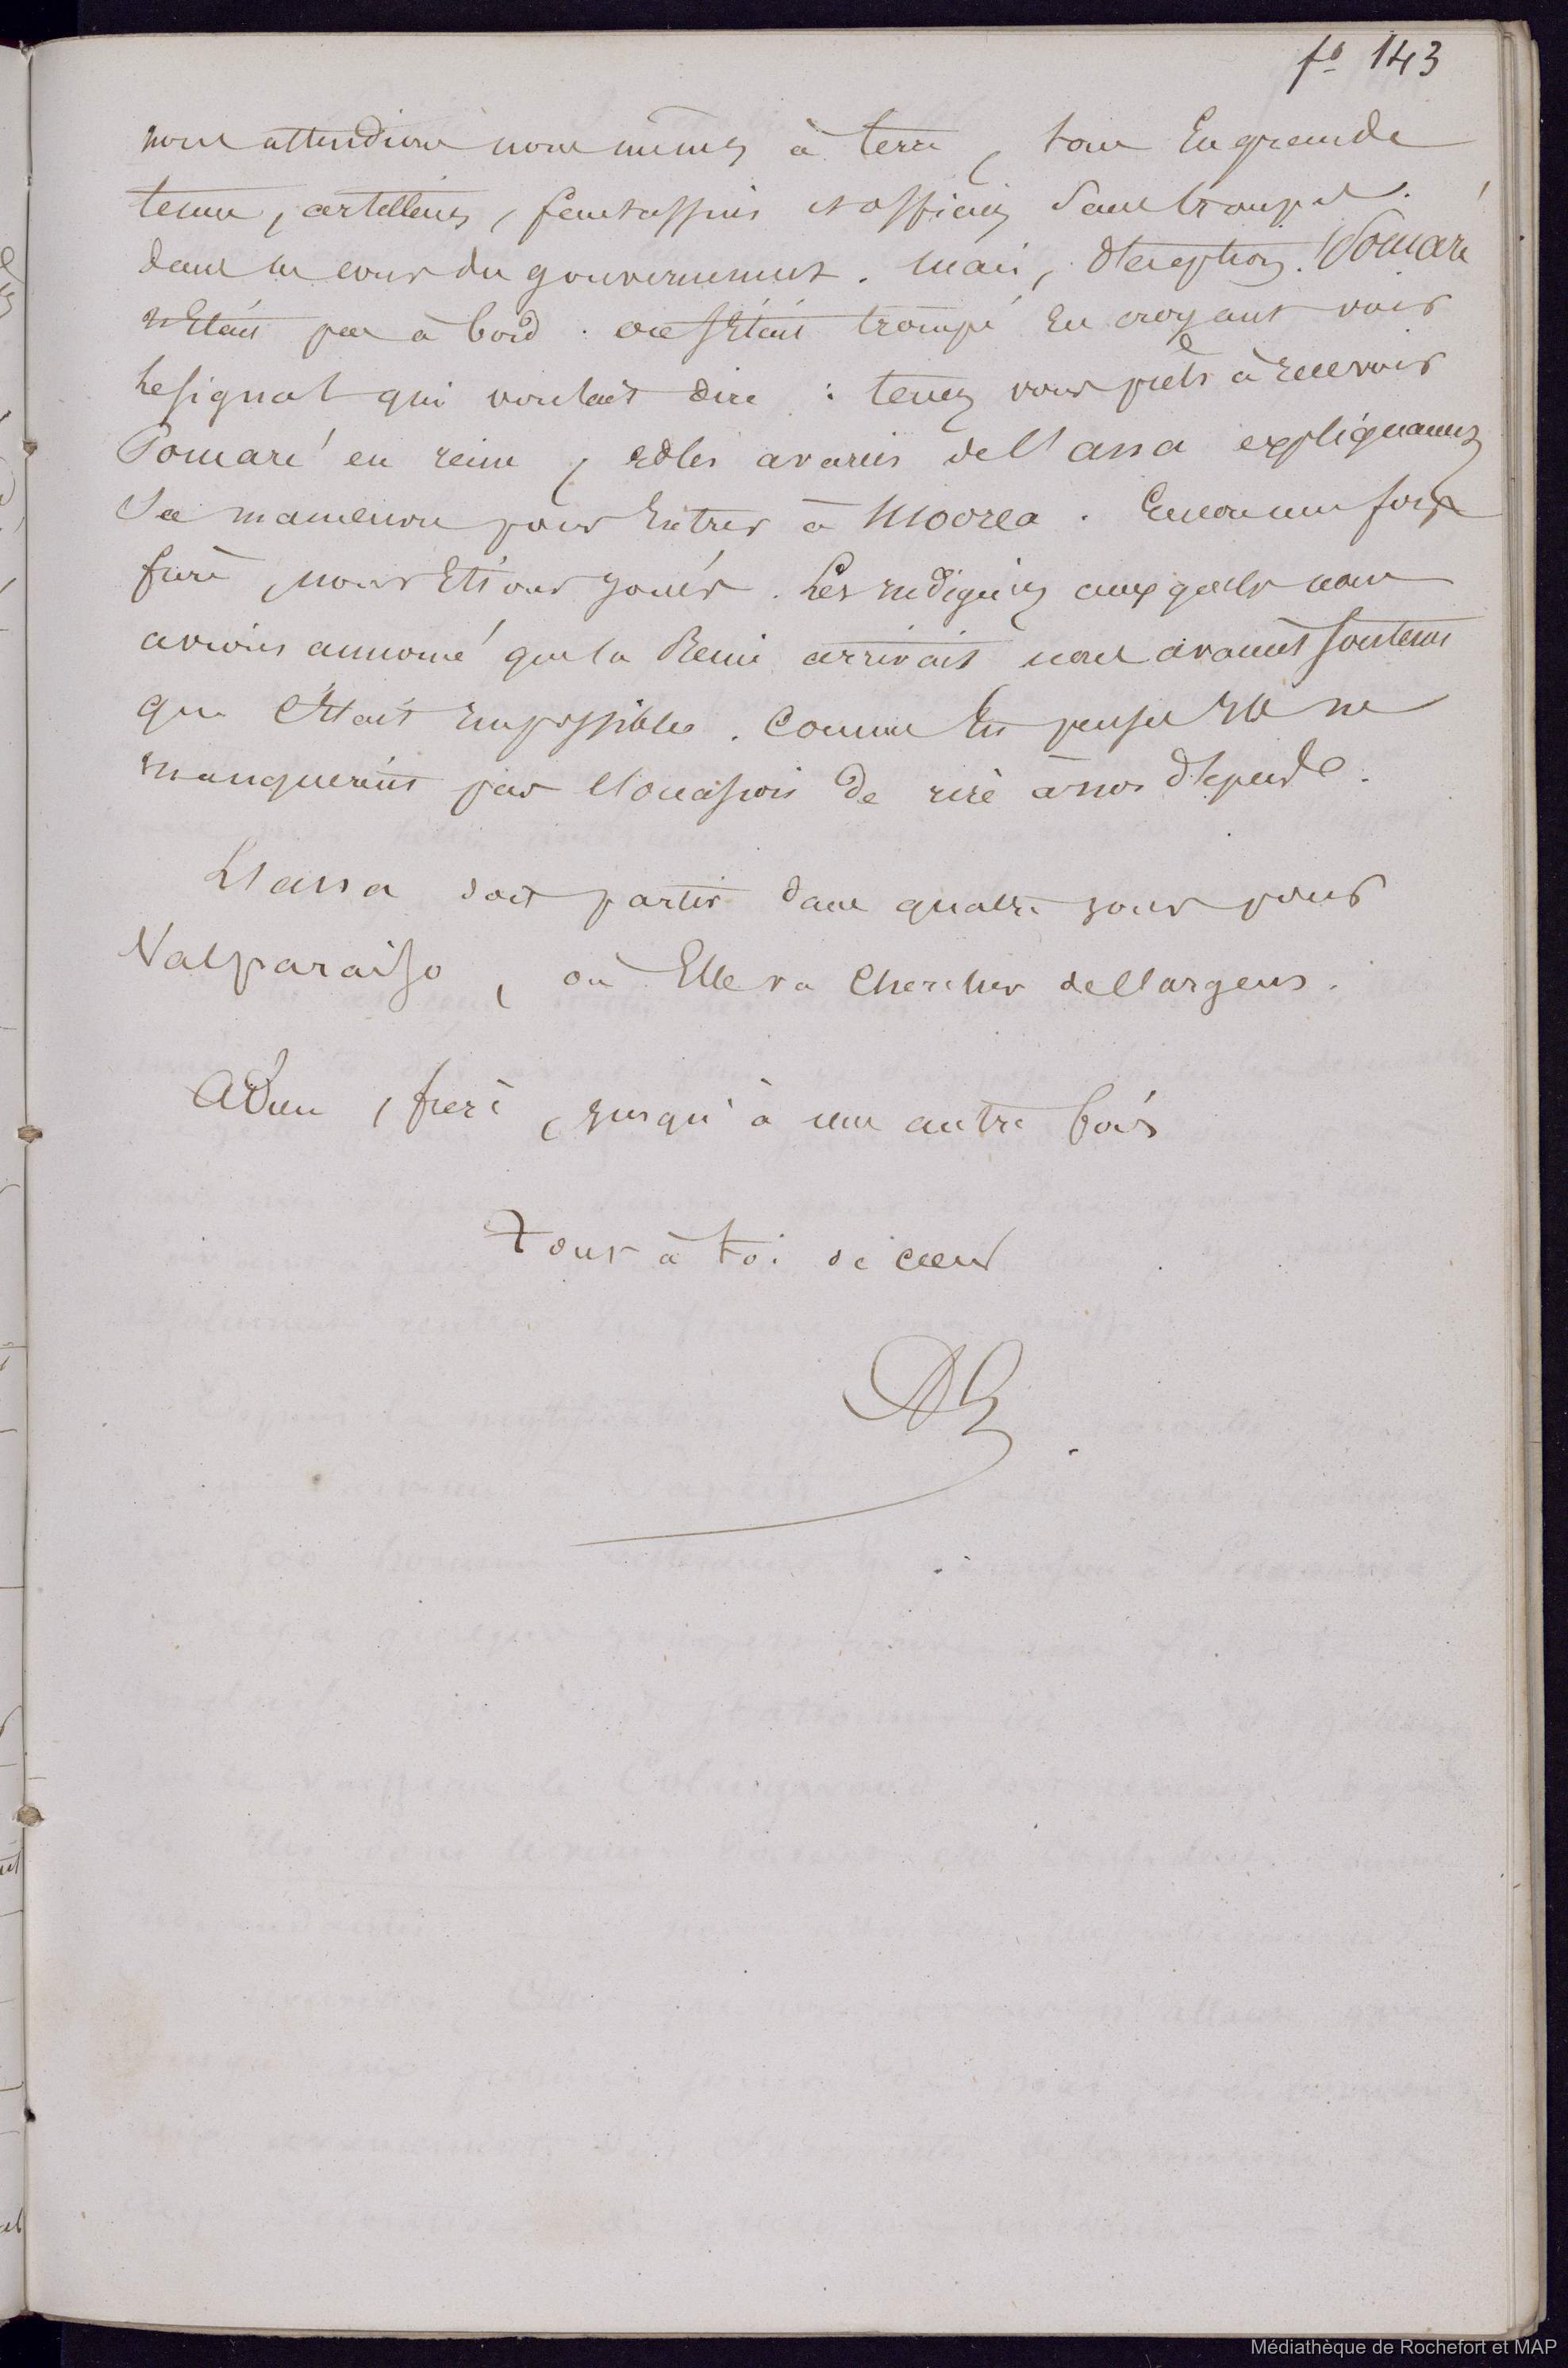 fo 143
nous attendions nous mêmes à terre, tous En grande
tenue, artilleurs, fantassins et officiers sans troupes.
dans la cour du gouvernement. Mais, Déception ! Pomaré
n'Etait pas à bord. on s'Etait trompé En croyant voir
le signal qui voulait dire : tenez vous prêts à recevoir
Pomaré en reine, et les avaries de l'assa expliquaient
Sa manœuvre pour Entrer à Moorea. Encore une fois
frère, nous Etions joués. Les indigènes auxquels nous
avions annoncé que la Reine arrivait nous avaient soutenu
que C'Etait impossible. Comme tu penses Ils ne
manquèrent pas l'occasion de rire à nos dépends.
L'assa doit partir dans quatre jours pour
Valparaiso, où Elle va Chercher de l'argent.
Adieu, frère, jusqu'à une autre fois
Tout à toi de cœur
Médiathèque de Rochefort et MAP